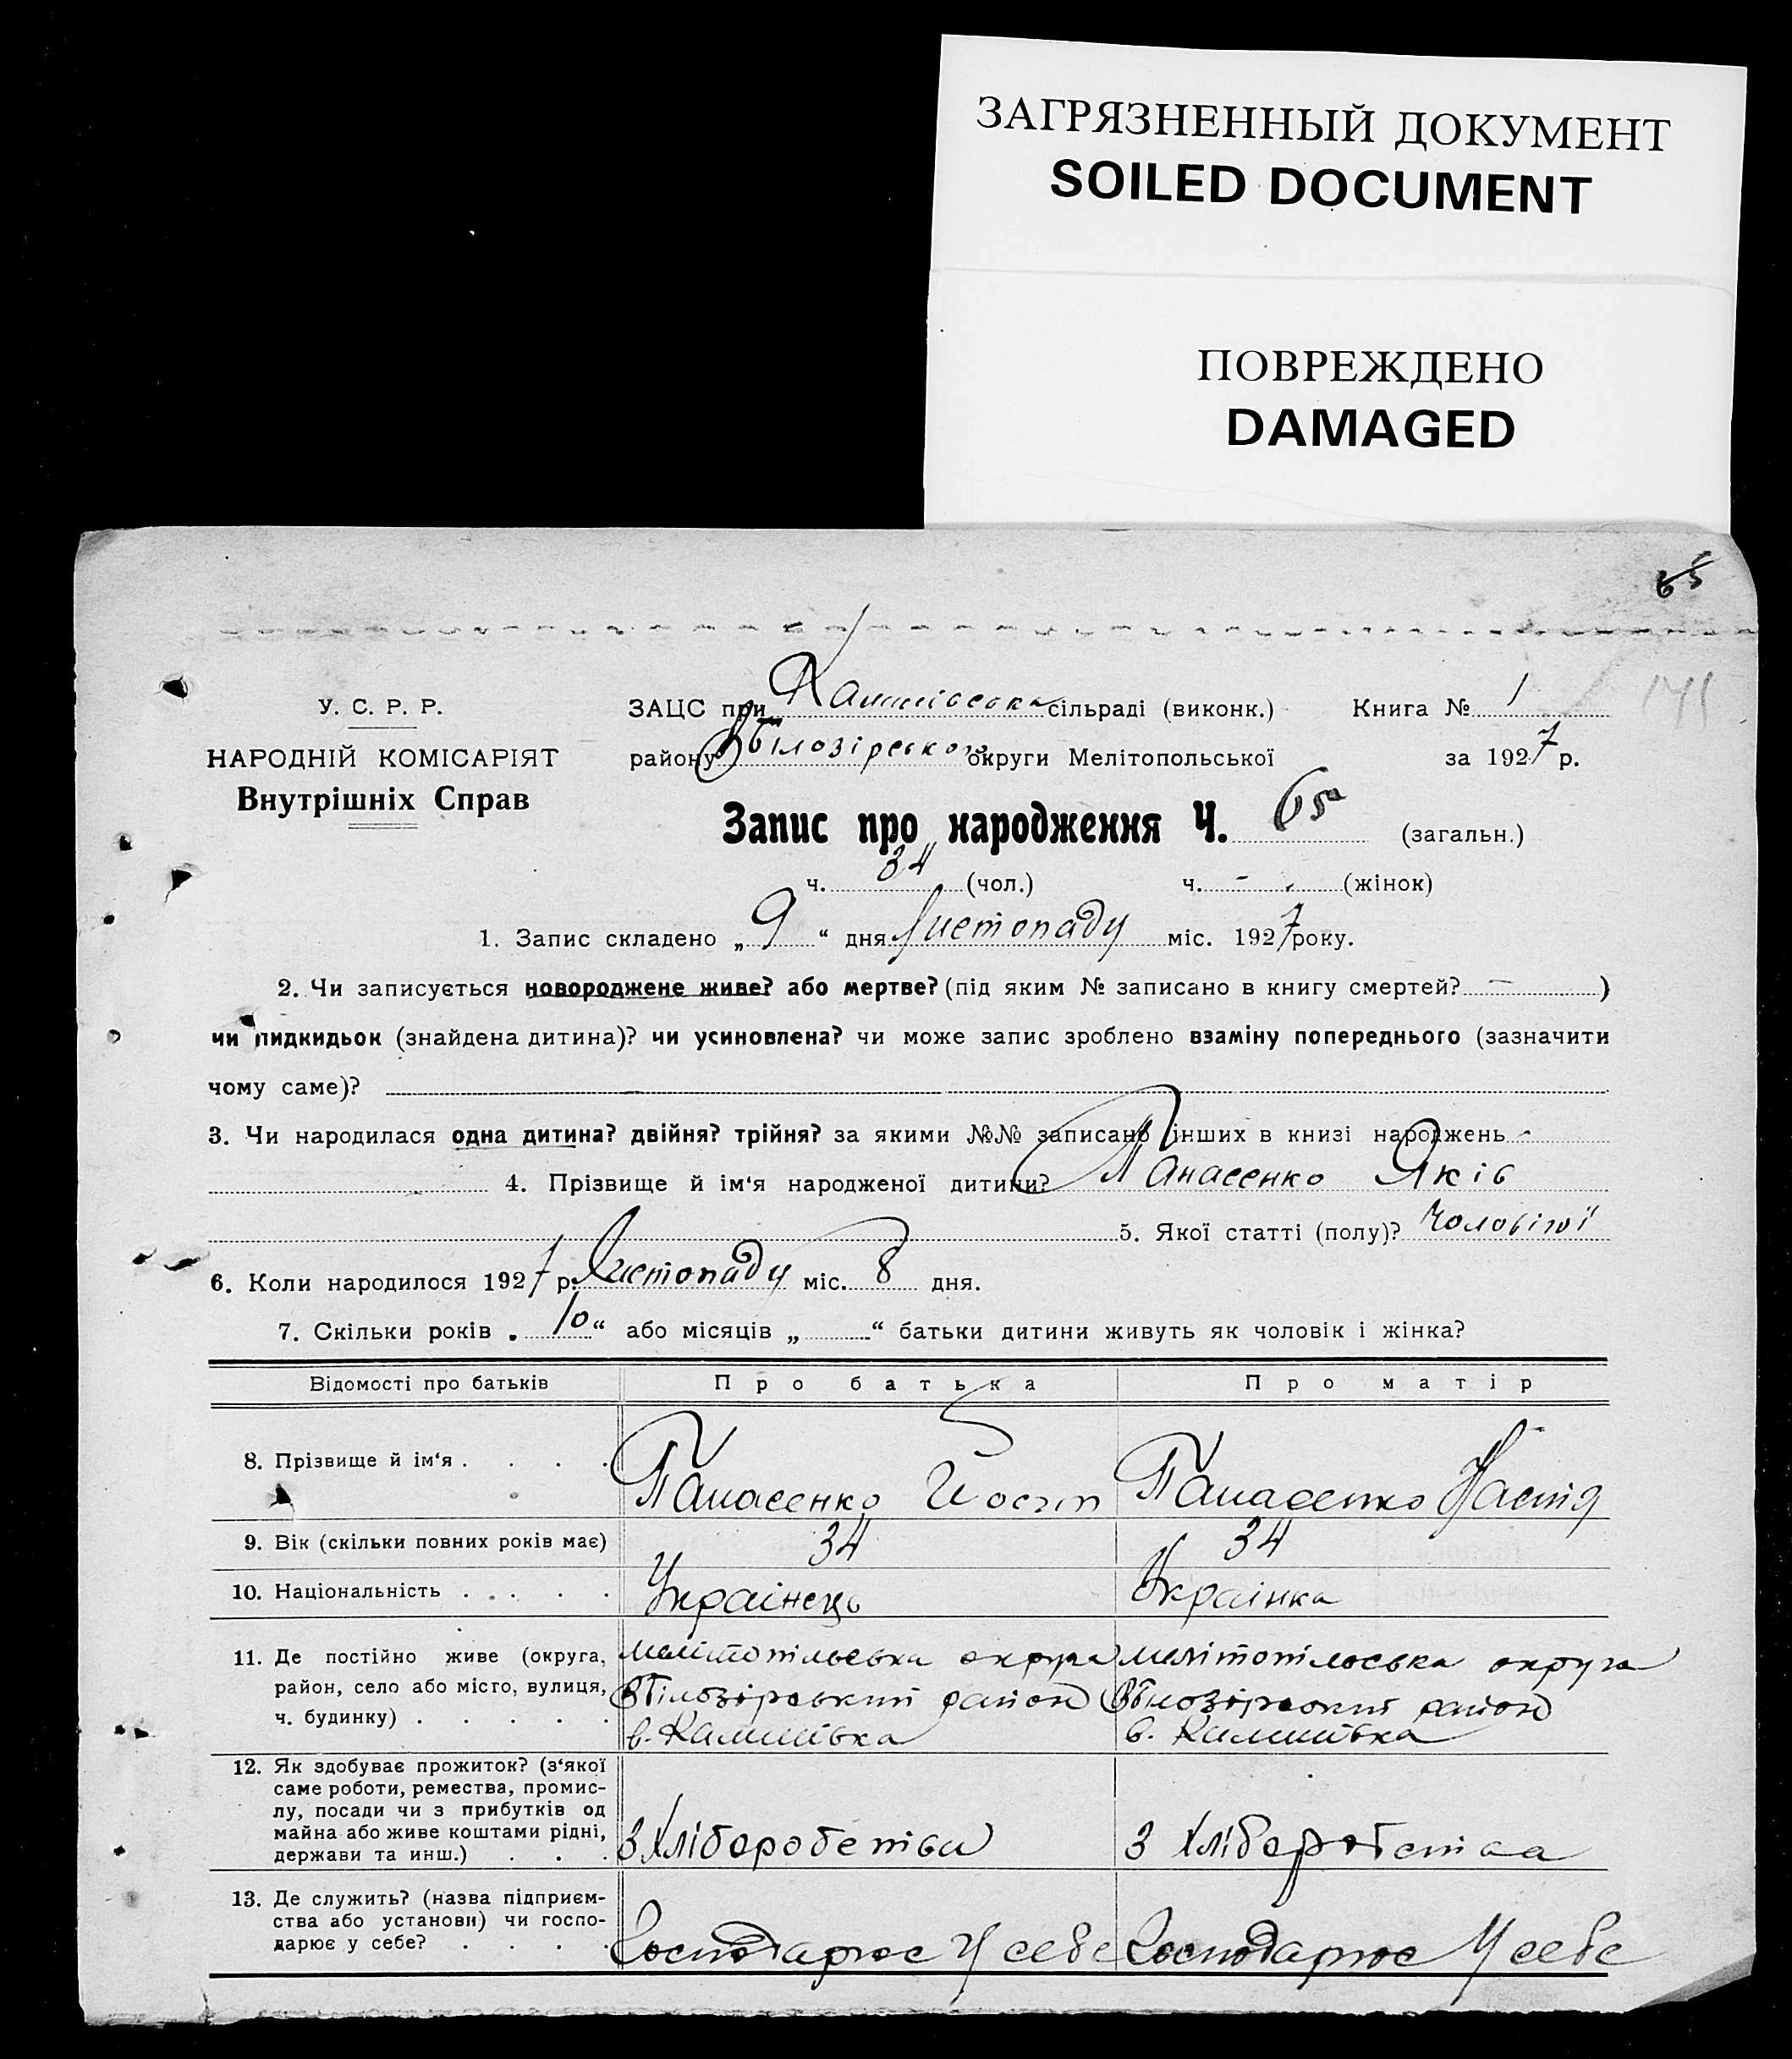 ЗАГРЯЗНЕННЫЙ ДОКУМЕНТ
SOILED DOCUMENT
ПОВРЕЖДЕНО
DAMAGED
65
У. С. Р. Р.
НАРОДНІЙ КОМІСАРІЯТ
Внутрішніх Справ
ЗАЦС при сільраді (виконк.) Книга № 1
району Білозірського округи Мелітопольської за 1927 р.
Запис про народження Ч. 65 (загальн.)
ч. 34 (чол.) ч. - (жінок)
1. Запис складено „ 9 “ дня Листопаду міс. 1927 року.
2. Чи записується новороджене живе? або мертве? (під яким № записано в книгу смертей? — )
чи пидкидьок (знайдена дитина)? чи усиновлена? чи може запис зроблено взаміну попереднього (зазначити
чому саме)?
3. Чи народилася одна дитина? двійня? трійня? за якими №№ записано інших в книзі народжень -
4. Прізвище й ім‘я народженої дитини? Панасенко Яків
5. Якої статті (полу)? Чоловічої
6. Коли народилося 1927 р. Листопаду міс. 8 дня.
7. Скільки років „ 10 “ або місяців „ “ батьки дитини живуть як чоловік і жінка?
Відомості про батьків Про батька Про матір
8. Прізвище й ім‘я . . . . Панасенко Йосип Панасенко Настя
9. Вік (скільки повних років має) 34 34
10. Національність . . . . Українець Українка
11. Де постійно живе (округа, мелітопільська округа мелітопільська округа
район, село або місто, вулиця, Білозірський район Білозірський район
ч. будинку) . . . . .
12. Як здобуває прожиток? (з‘якої
саме роботи, ремества, промис-
лу, посади чи з прибутків од
майна або живе коштами рідні, З хліборобства З хліборобства
держави та инш.) . . .
13. Де служить? (назва підприєм-
ства або установи) чи госпо-
дарює у себе? . . . . Господарює У себе Господарює У себе